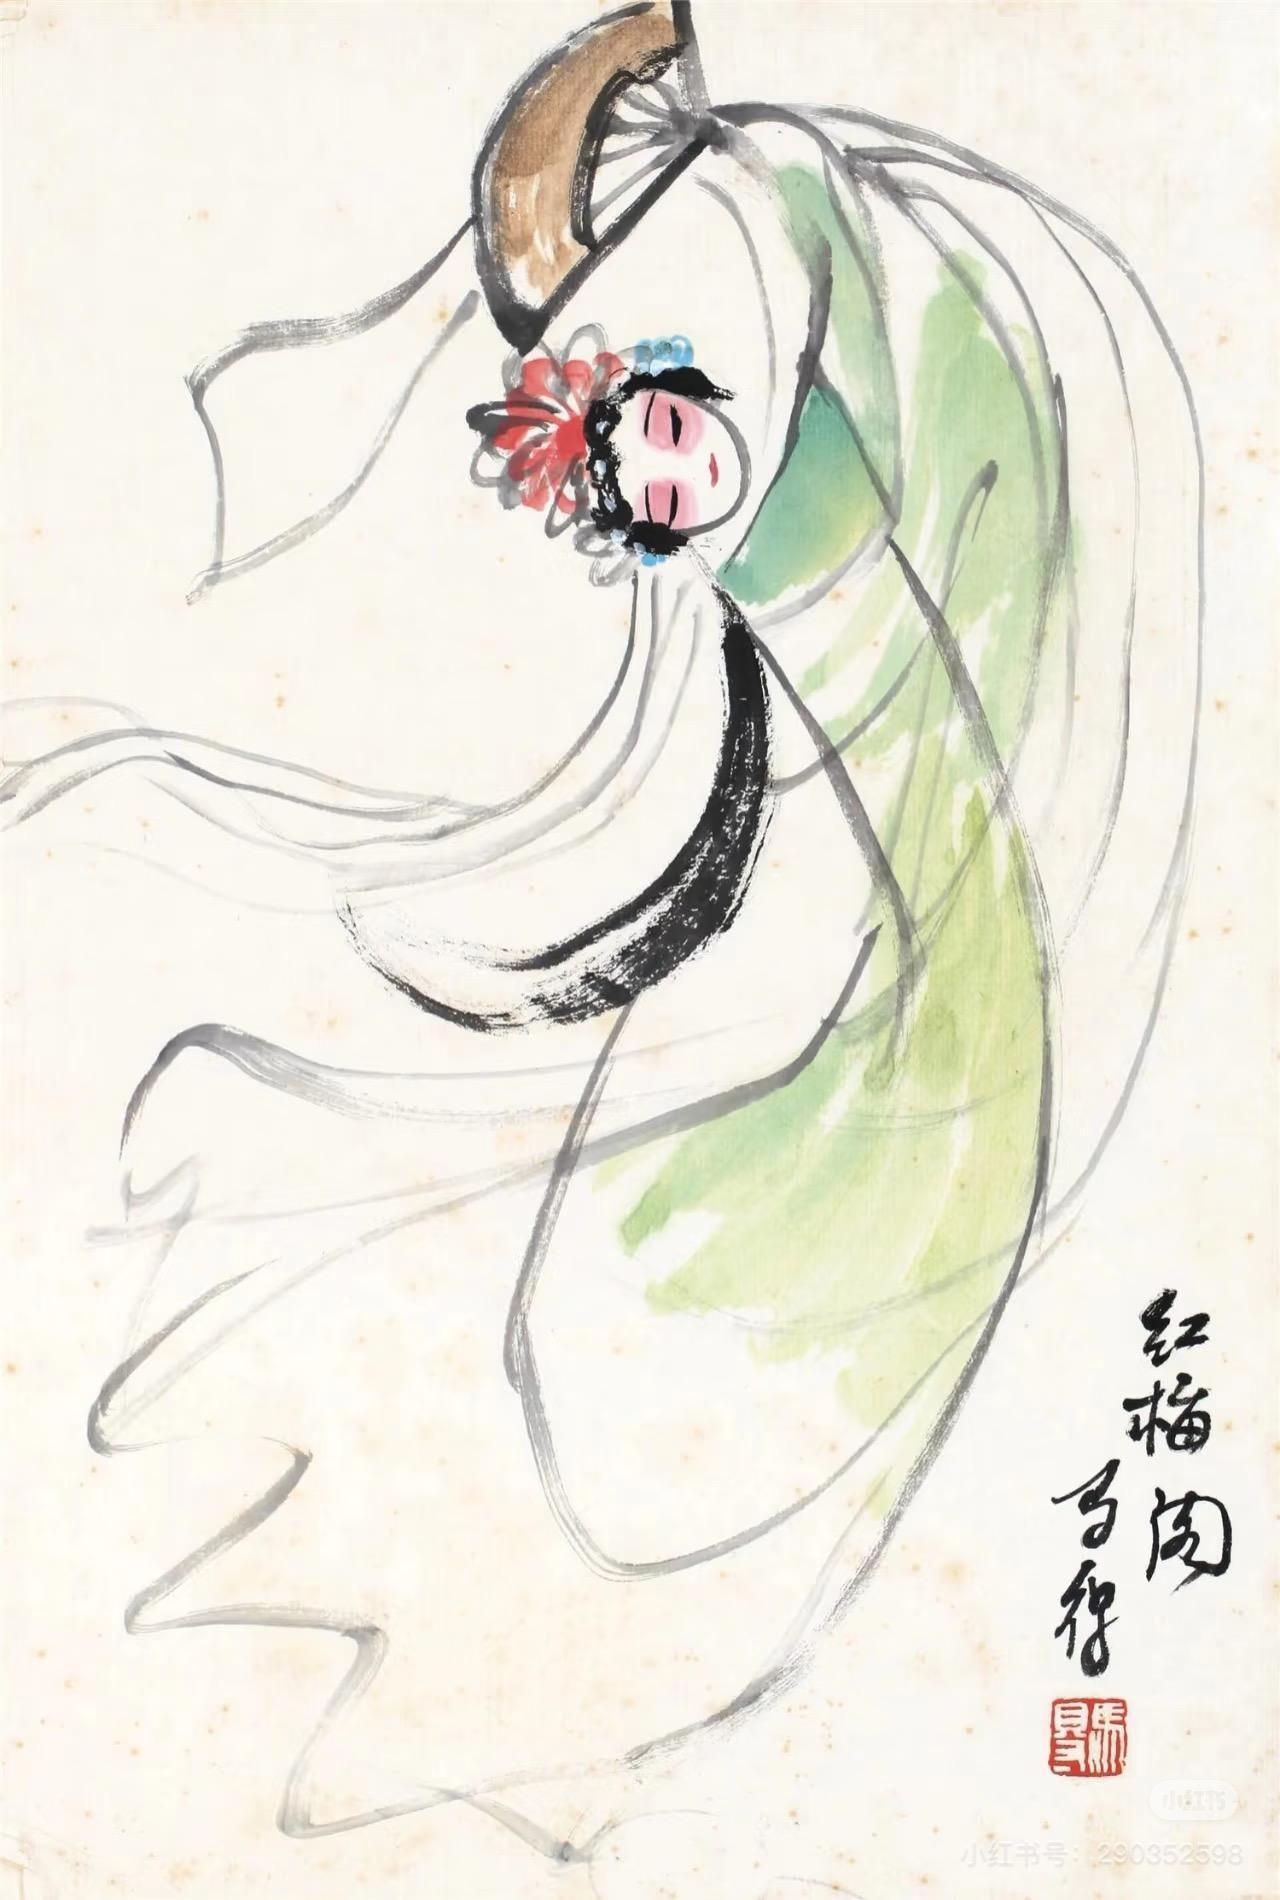 红梅阁
马得
馬得
小红书
小红书号：290352598